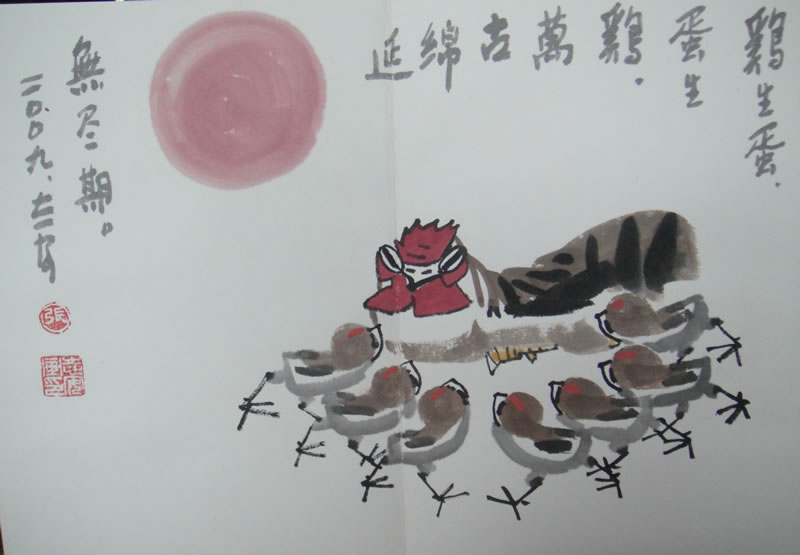 鷄生蛋、
蛋生
鷄。
萬
古
綿
延
無尽期。
二〇〇九、
張